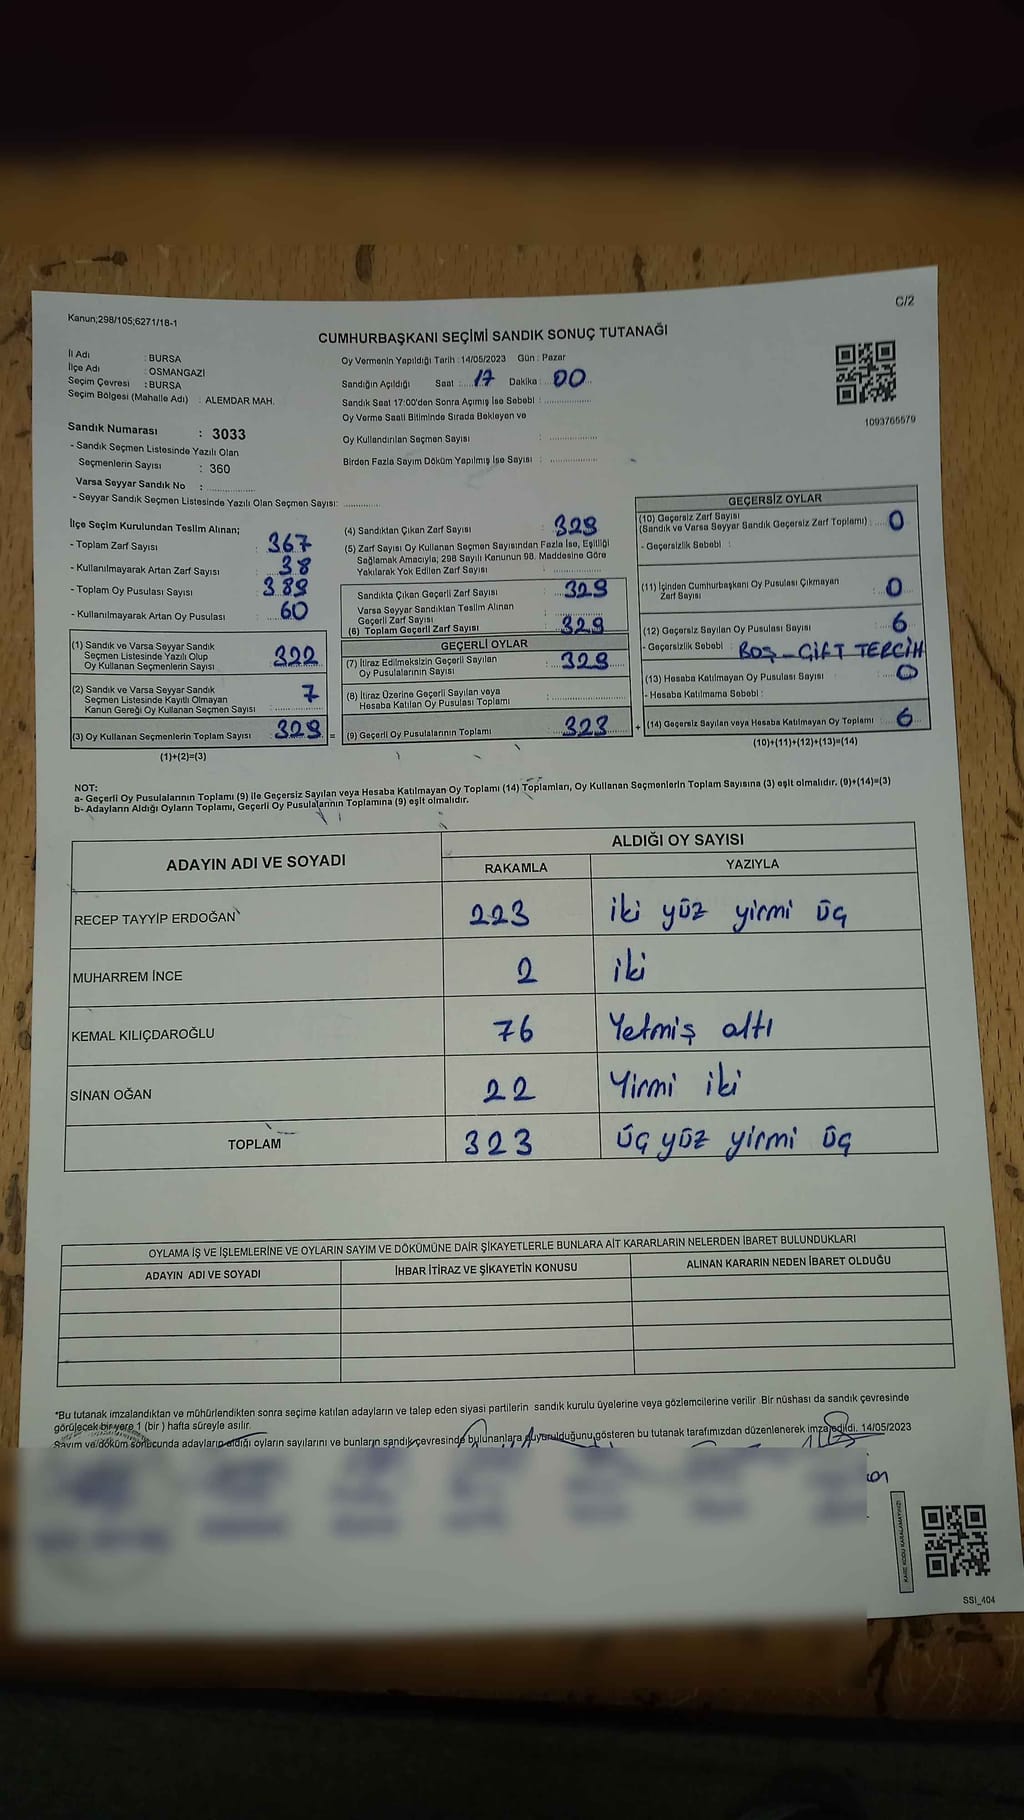 C/2
Kanun;298/105;6271/18-1
CUMHURBAŞKANI SEÇİMİ SANDIK SONUÇ TUTANAĞI
İl Adı : BURSA
İlçe Adı : OSMANGAZİ
Seçim Çevresi : BURSA
Seçim Bölgesi (Mahalle Adı) : ALEMDAR MAH.
Oy Vermenin Yapıldığı Tarih : 14/05/2023 Gün : Pazar
Sandığın Açıldığı Saat : 17 Dakika : 00
Sandık Saat 17:00'den Sonra Açımış İse Sebebi :
Oy Verme Saati Bitiminde Sırada Bekleyen ve
Oy Kullandırılan Seçmen Sayısı :
Birden Fazla Sayım Döküm Yapılmış İse Sayısı :
1093765579
Sandık Numarası : 3033
- Sandık Seçmen Listesinde Yazılı Olan
Seçmenlerin Sayısı : 360
Varsa Seyyar Sandık No :
- Seyyar Sandık Seçmen Listesinde Yazılı Olan Seçmen Sayısı:
İlçe Seçim Kurulundan Teslim Alınan;
- Toplam Zarf Sayısı : 367
- Kullanılmayarak Artan Zarf Sayısı : 38
- Toplam Oy Pusulası Sayısı : 389
- Kullanılmayarak Artan Oy Pusulası : 60
(1) Sandık ve Varsa Seyyar Sandık
Seçmen Listesinde Yazılı Olup
Oy Kullanan Seçmenlerin Sayısı : 322
(2) Sandık ve Varsa Seyyar Sandık
Seçmen Listesinde Kayıtlı Olmayan
Kanun Gereği Oy Kullanan Seçmen Sayısı : 7
(3) Oy Kullanan Seçmenlerin Toplam Sayısı : 329 =
(1)+(2)=(3)
(4) Sandıktan Çıkan Zarf Sayısı : 329
(5) Zarf Sayısı Oy Kullanan Seçmen Sayısından Fazla İse, Eşitliği
Sağlamak Amacıyla; 298 Sayılı Kanunun 98. Maddesine Göre
Yakılarak Yok Edilen Zarf Sayısı :
Sandıkta Çıkan Geçerli Zarf Sayısı : 329
Varsa Seyyar Sandıktan Teslim Alınan
Geçerli Zarf Sayısı
(6) Toplam Geçerli Zarf Sayısı : 329
GEÇERLİ OYLAR
(7) İtiraz Edilmeksizin Geçerli Sayılan
Oy Pusulalarının Sayısı : 323
(8) İtiraz Üzerine Geçerli Sayılan veya
Hesaba Katılan Oy Pusulası Toplamı :
(9) Geçerli Oy Pusulalarının Toplamı : 323 +
GEÇERSİZ OYLAR
(10) Geçersiz Zarf Sayısı
(Sandık ve Varsa Seyyar Sandık Geçersiz Zarf Toplamı) : 0
- Geçersizlik Sebebi :
(11) İçinden Cumhurbaşkanı Oy Pusulası Çıkmayan
Zarf Sayısı : 0
(12) Geçersiz Sayılan Oy Pusulası Sayısı : 6
- Geçersizlik Sebebi : BOŞ - ÇİFT TERCİH
(13) Hesaba Katılmayan Oy Pusulası Sayısı : 0
- Hesaba Katılmama Sebebi :
(14) Geçersiz Sayılan veya Hesaba Katılmayan Oy Toplamı : 6
(10)+(11)+(12)+(13)=(14)
NOT:
a- Geçerli Oy Pusulalarının Toplamı (9) ile Geçersiz Sayılan veya Hesaba Katılmayan Oy Toplamı (14) Toplamları, Oy Kullanan Seçmenlerin Toplam Sayısına (3) eşit olmalıdır. (9)+(14)=(3)
b- Adayların Aldığı Oyların Toplamı, Geçerli Oy Pusulalarının Toplamına (9) eşit olmalıdır.
ADAYIN ADI VE SOYADI ALDIĞI OY SAYISI
RAKAMLA YAZIYLA
RECEP TAYYİP ERDOĞAN 223 iki yüz yirmi üç
MUHARREM İNCE 2 iki
KEMAL KILIÇDAROĞLU 76 Yetmiş altı
SİNAN OĞAN 22 Yirmi iki
TOPLAM 323 üç yüz yirmi üç
OYLAMA İŞ VE İŞLEMLERİNE VE OYLARIN SAYIM VE DÖKÜMÜNE DAİR ŞİKAYETLERLE BUNLARA AİT KARARLARIN NELERDEN İBARET BULUNDUKLARI
ADAYIN ADI VE SOYADI İHBAR İTİRAZ VE ŞİKAYETİN KONUSU ALINAN KARARIN NEDEN İBARET OLDUĞU
*Bu tutanak imzalandıktan ve mühürlendikten sonra seçime katılan adayların ve talep eden siyasi partilerin sandık kurulu üyelerine veya gözlemcilerine verilir. Bir nüshası da sandık çevresinde
görülecek bir yere 1 (bir ) hafta süreyle asılır.
Sayım ve döküm sonucunda adayların aldığı oyların sayılarını ve bunların sandık çevresinde bulunanlara duyurulduğunu gösteren bu tutanak tarafımızdan düzenlenerek imza edildi. 14/05/2023
SSİ_404